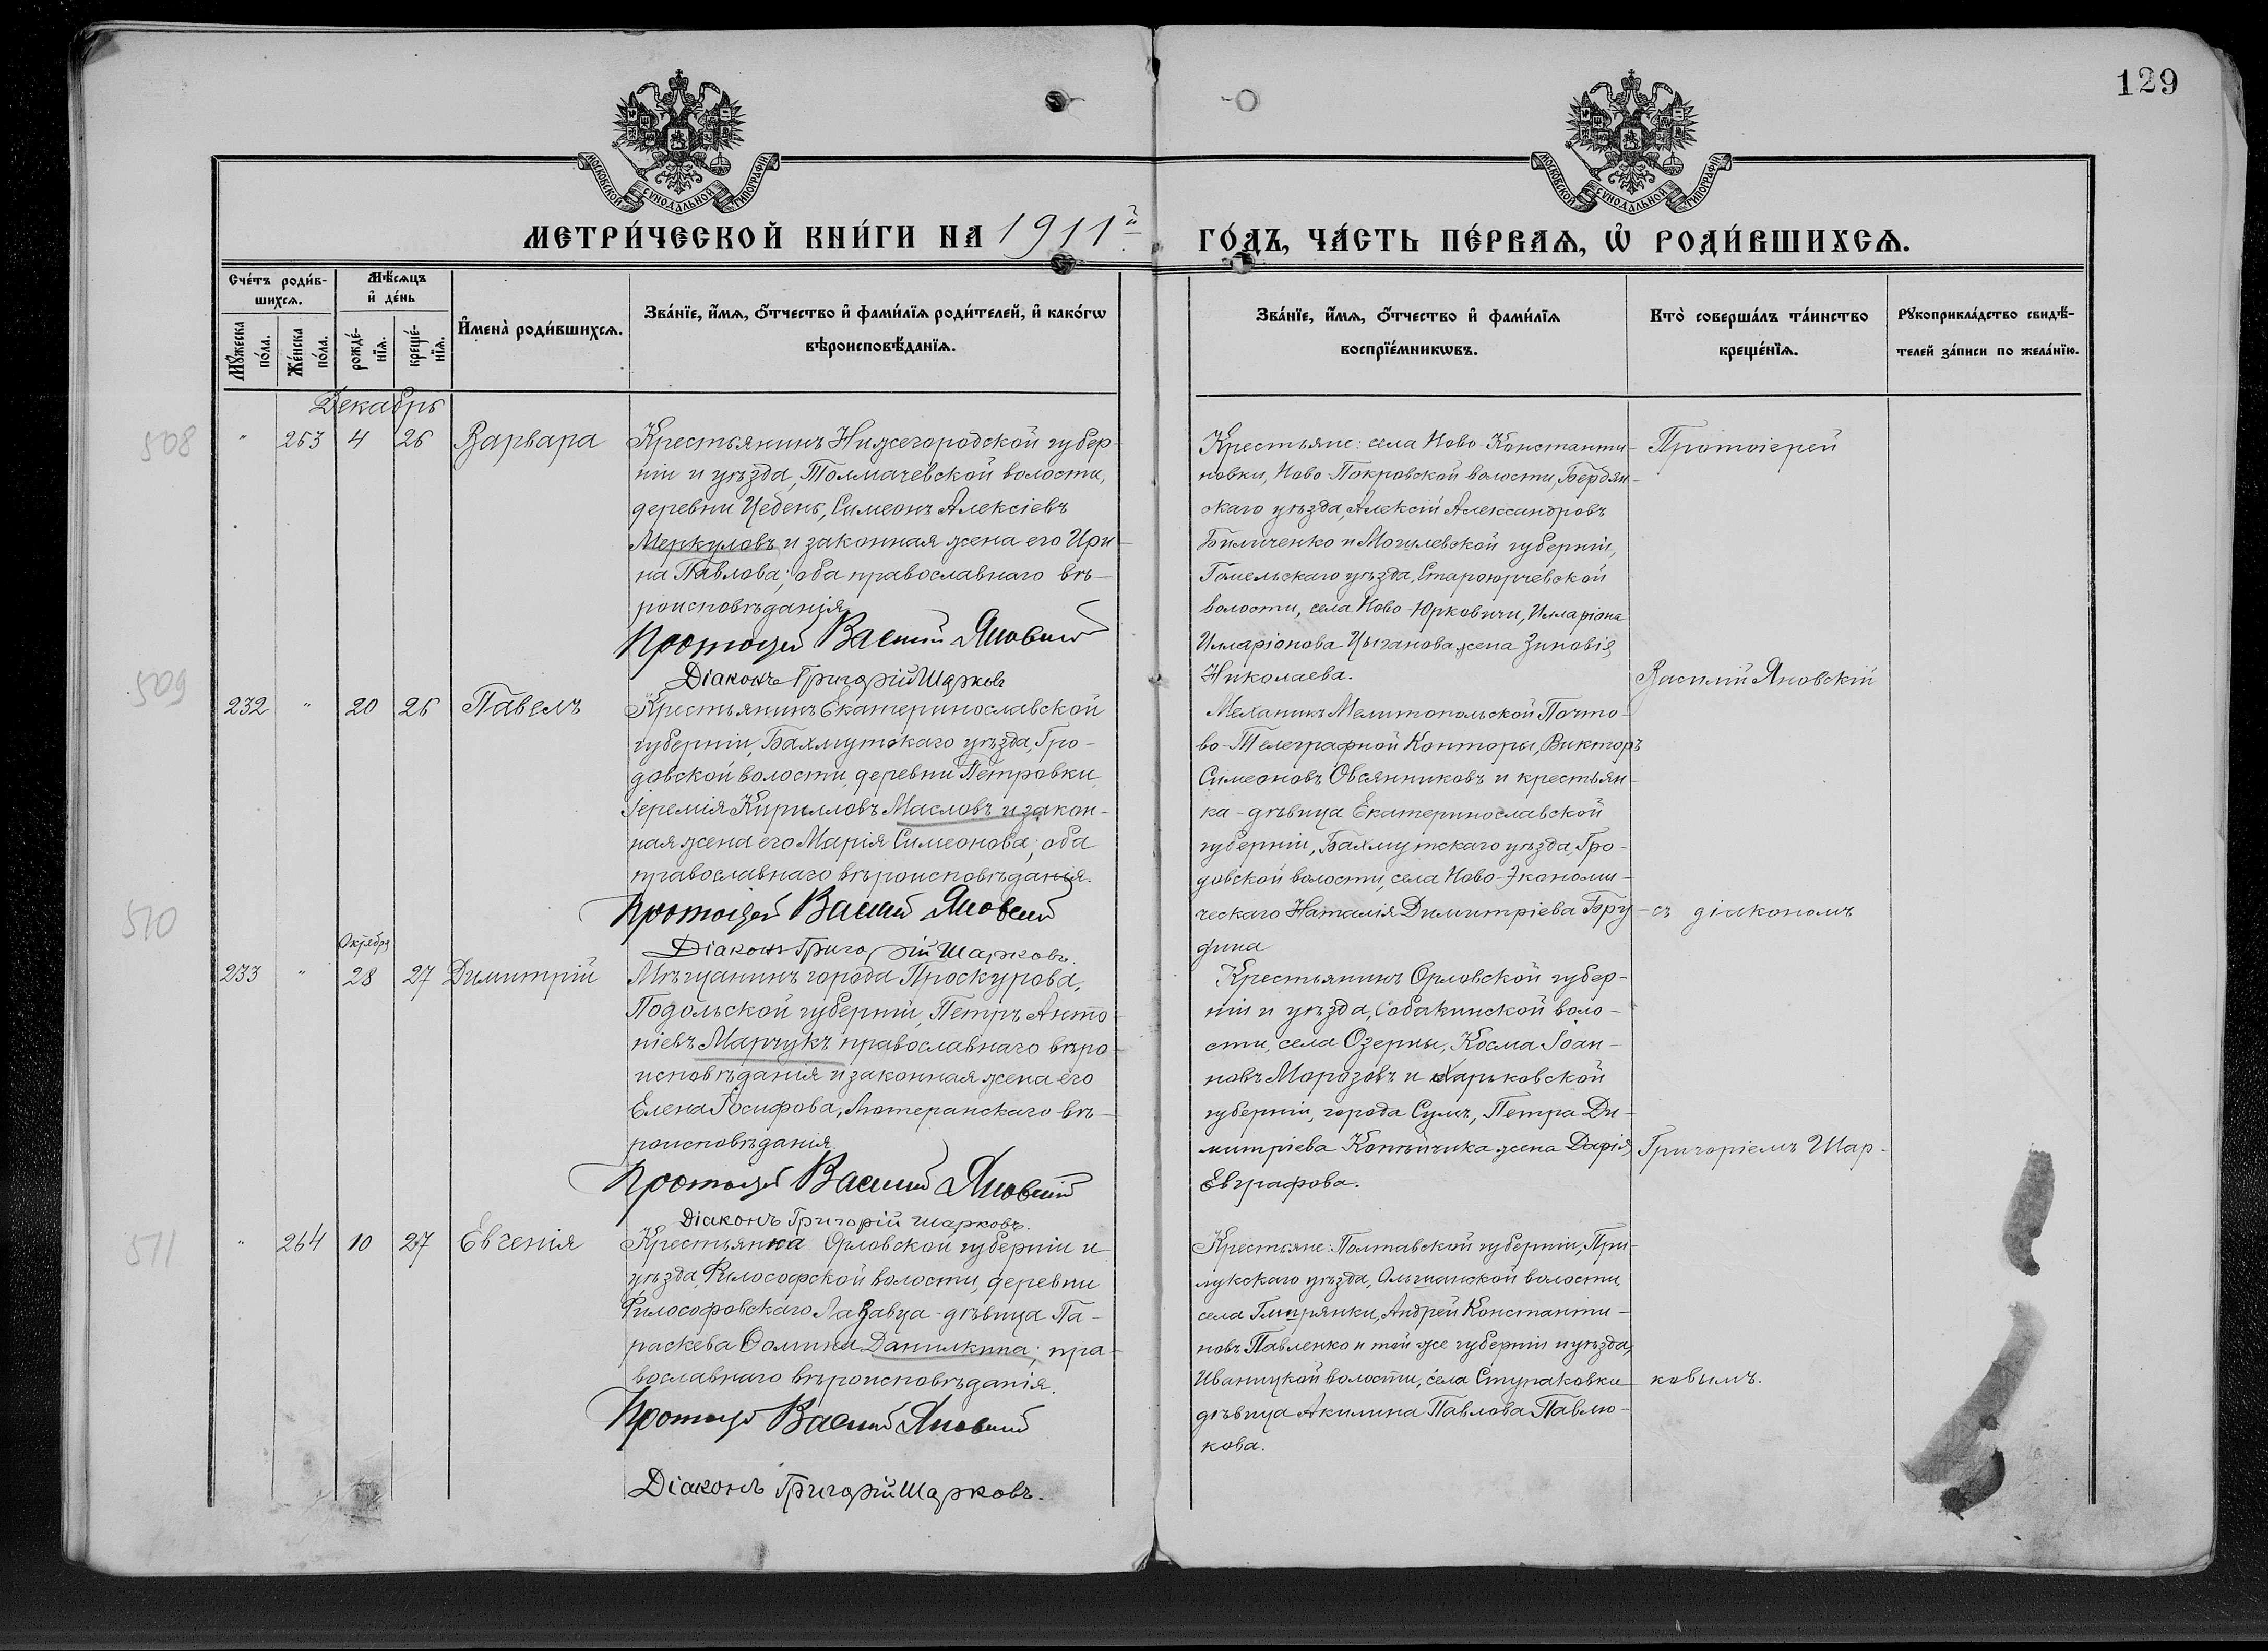 129
МЕТРИ́ЧЕСКОЙ КНИ́ГИ НА 1911й ГО́ДЪ, ЧА́СТЬ ПЕ́РВАѦ, Ѡ҆ РОДИ́ВШИХСѦ.
Сче́тъ роди́в-
шихсѧ.
Мѹ́жеска по́ла.
Же́нска по́ла.
Мѣ́сѧцъ и҆ де́нь
рожде́-нїѧ.
креще́-нїѧ.
И҆мена̀ роди́вшихсѧ.
Зва́нїе, и҆́мѧ, ѻ҆́тчество и҆ фами́лїѧ роди́телей, и҆ како́гѡ
вѣроисповѣ́данїѧ.
Зва́нїе, и҆́мѧ, ѻ҆́тчество и҆ фами́лїѧ
воспрїе́мникѡвъ.
Кто̀ соверша́лъ та́инство
креще́нїѧ.
Рѹкоприкла́дство свидѣ́-
телей за́писи по жела́нїю.
Декабрь
508
" 263 4 26 Варвара
Крестьянинъ Нижегородской губер-
ніи и уѣзда, Толмачевской волости,
деревни Цедень, Симеонъ Алексіевъ
Меркуловъ и законная жена его Ири-
на Павлова; оба православнаго вѣ-
роисповѣданія
Протоіерей Василій Яновскій
Діаконъ Григорій Шарковъ
Крестьяне: села Ново-Константи-
новки, Ново-Покровской волости, Бердян-
скаго уѣзда, Алексій Александровъ
Биличенко и Могилевской губерніи,
Гомельскаго уѣзда, Староюрчевской
волости, села Ново-Юрковичи, Илларіона
Илларіонова Цыганова жена Зиновія
Николаева.
Протоіерей
Василій Яновскій
509
232 " 20 26 Павелъ
Крестьянинъ Екатеринославской
губерніи, Бахмутскаго уѣзда, Гро-
довской волости, деревни Петровки
Іеремія Кирилловъ Масловъ и закон-
ная жена его Марія Симеонова; оба
православнаго вѣроисповѣданія.
Протоіерей Василій Яновскій
Діаконъ Григорій Шарковъ.
Механикъ Мелитопольской Почто-
во-Телеграфной Конторы, Викторъ
Симеоновъ Овсянниковъ и крестьян-
ка-дѣвица Екатеринославской
губерніи, Бахмутскаго уѣзда, Гро-
довской волости, села Ново-Экономи-
ческаго Наталія Димитріева Бру-
дина
съ діакономъ
510
Октября
233 " 28 27 Димитрій
Мѣщанинъ города Проскурова,
Подольской губерніи, Петръ Анто-
ніевъ Марчукъ православнаго вѣро-
исповѣданія и законная жена его
Елена Іосифова, Лютеранскаго вѣ-
роисповѣданія.
Протоіерей Василій Яновскій
Діаконъ Григорій Шарковъ.
Крестьянинъ Орловской губер-
ніи и уѣзда, Собакинской воло-
сти, села Озерны, Косма Іоан-
новъ Морозовъ и Харьковской
губерніи, города Сумъ, Петра Ди-
митріева Копѣйчика жена Дарія
Евграфова.
Григоріемъ Шар-
511
" 264 10 27 Евгенія
Крестьянка Орловской губерніи и
уѣзда, Философской волости, деревни
Философовскаго Лазавца-дѣвица Па-
раскева Ѳомина Данилкина; пра-
вославнаго вѣроисповѣданія.
Протоіерей Василій Яновскій
Діаконъ Григорій Шарковъ.
Крестьяне: Полтавской губерніи, При-
лукскаго уѣзда, Ольшанской волости,
села Гмирянки, Андрей Константи-
новъ Павленко и той же губерніи и уѣзда,
Иваницкой волости, села Ступаковки
дѣвица Акилина Павлова Павлю-
кова.
ковымъ.